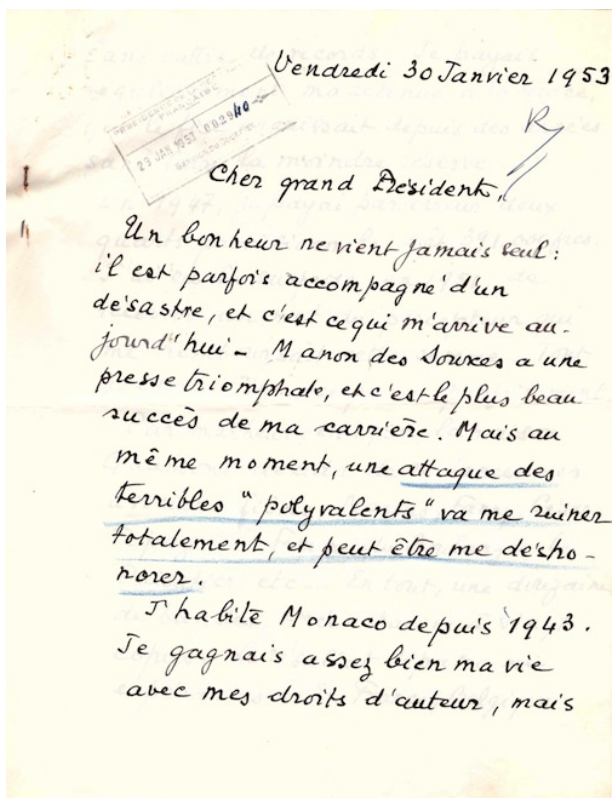 Vendredi 30 Janvier 1953
PRESIDENCE DE LA
FRANÇAISE
29 JAN 1953 002940
R
Cher grand Présidents,
Un bonheur ne vient jamais seul :
il est parfois accompagné d'un
désastre, et c'est ce qui m'arrive au-
jourd'hui - Manon des Sources a une
presse triomphale, et c'est le plus beau
succès de ma carrière. Mais au
même moment, une attaque des
terribles "polyvalents" va me ruiner
totalement, et peut être me désho-
norer.
J'habite Monaco depuis 1943.
Je gagnais assez bien ma vie
avec mes droits d'auteur, mais